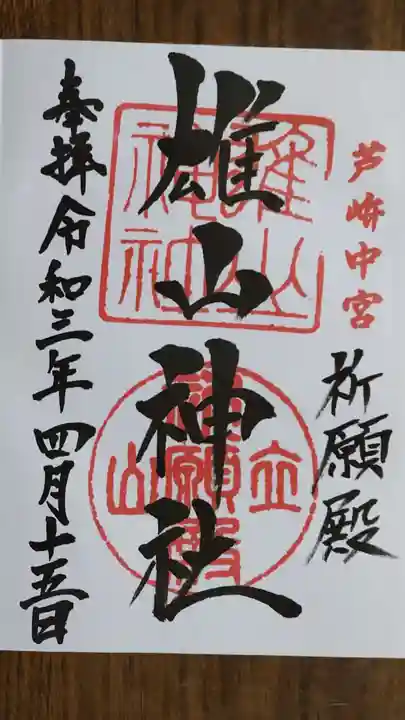 芦峅中宮
祈願殿
雄山神社
雄山
神社
立山
祈願殿
奉拝令和三年四月十五日